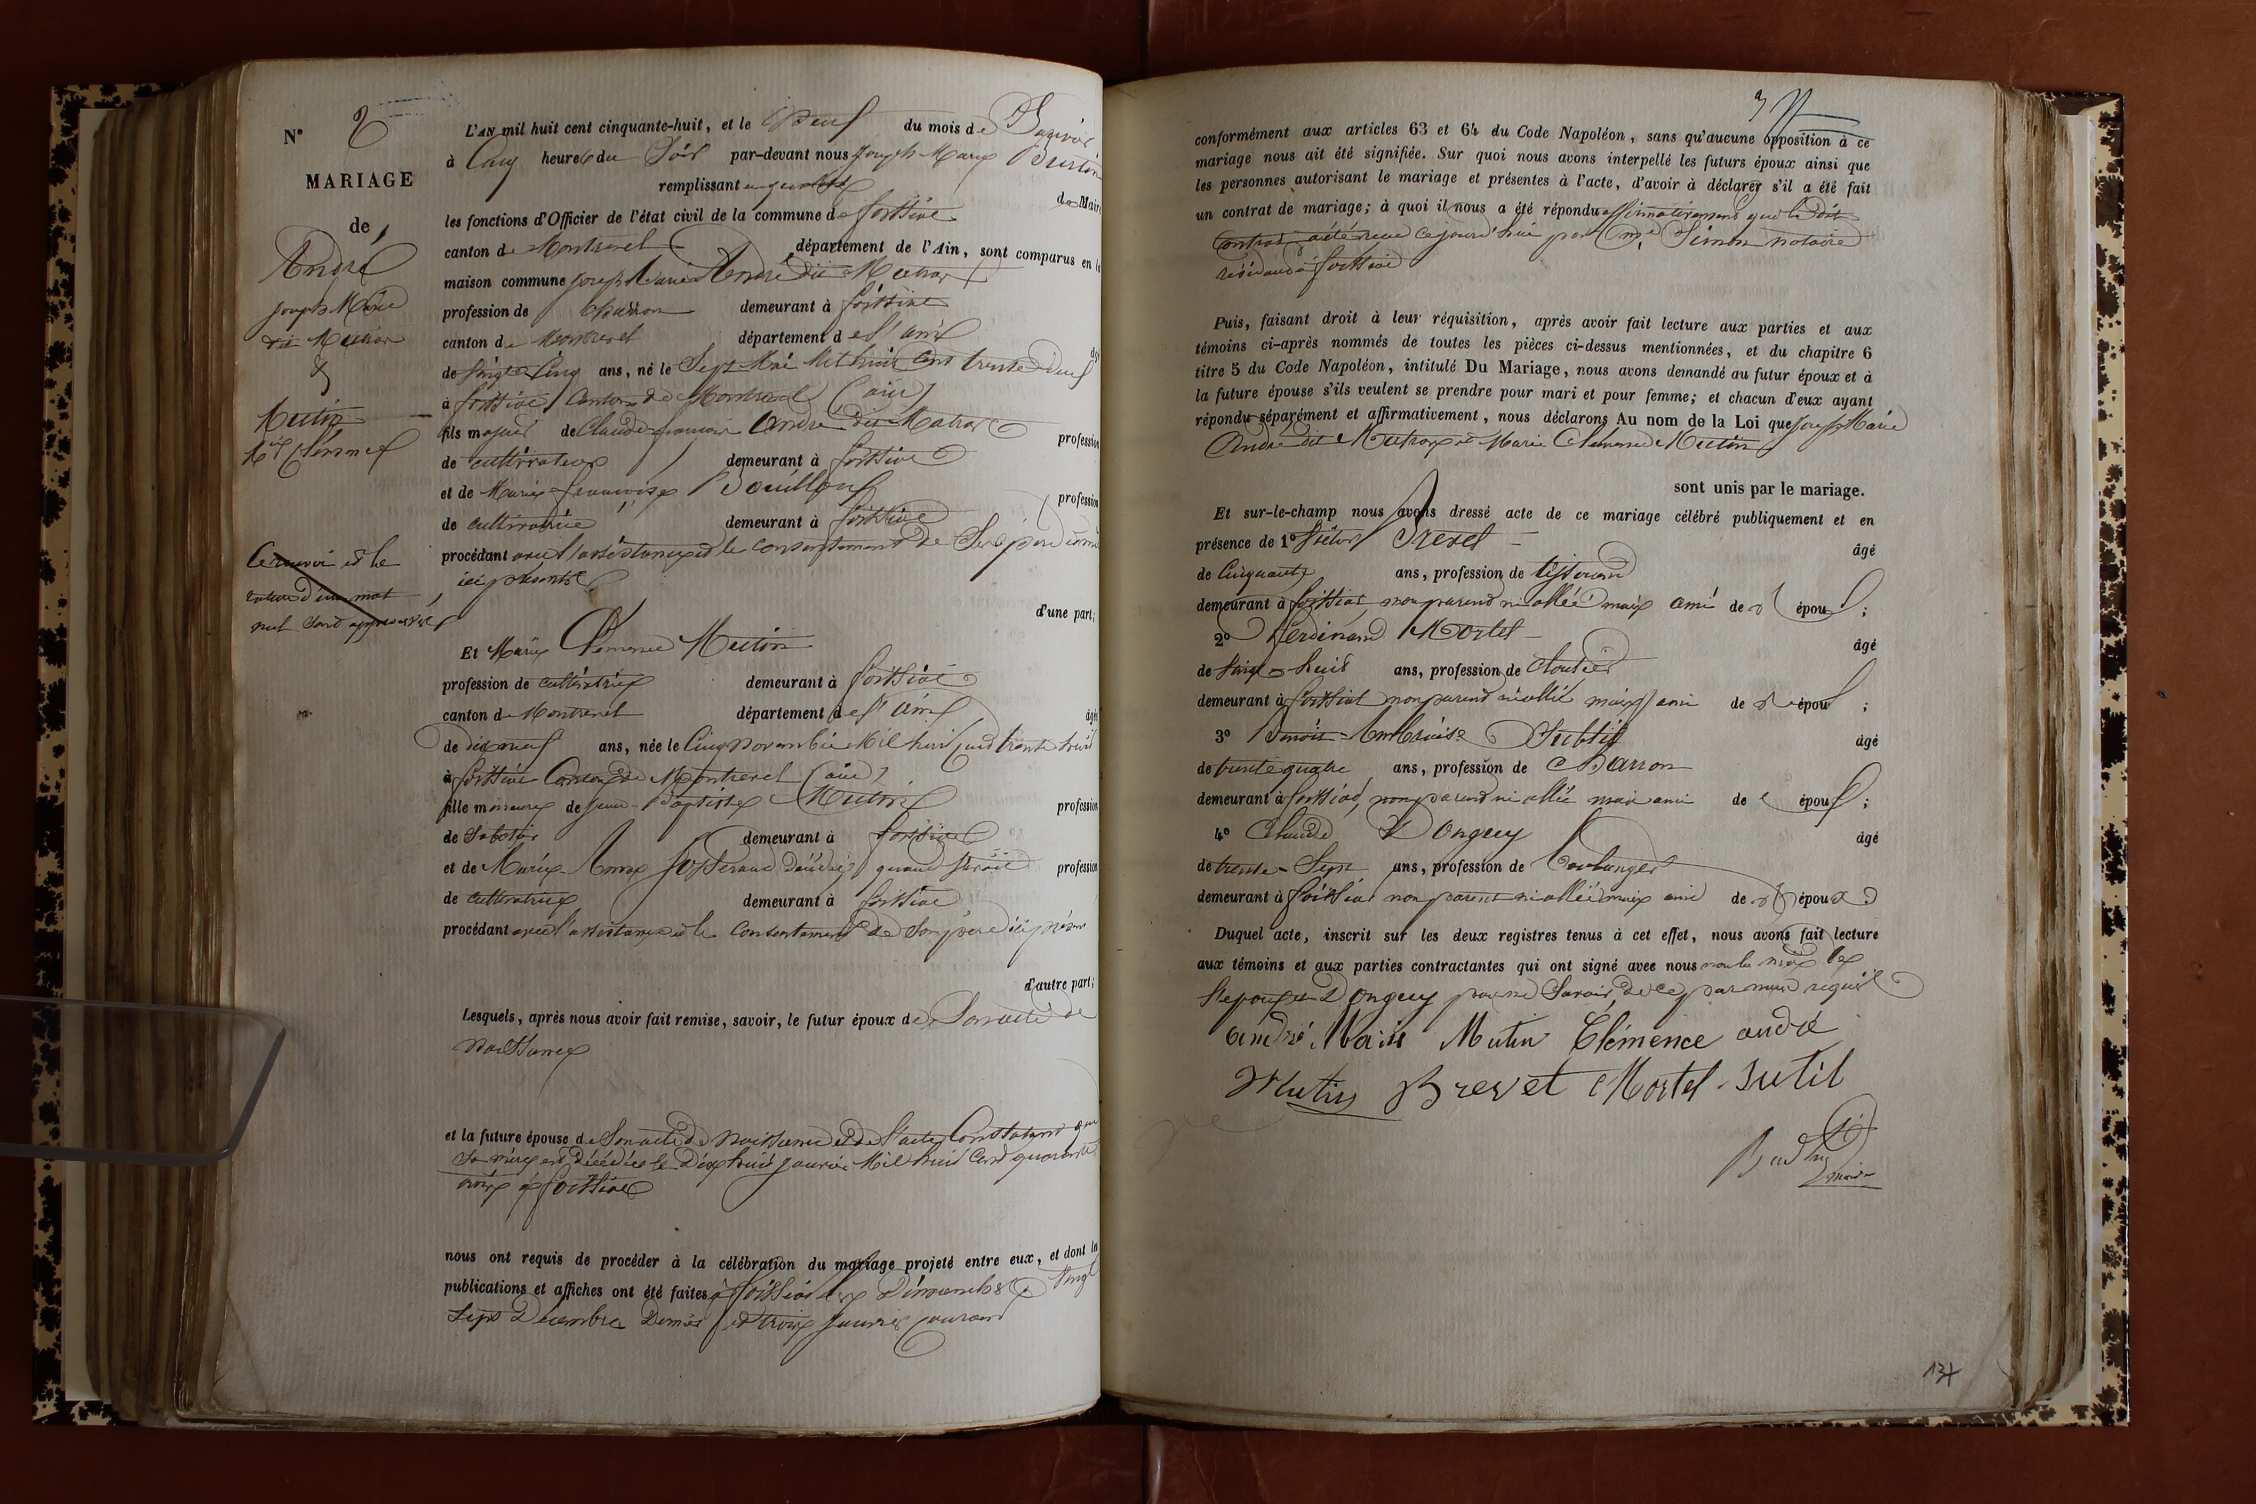 N° 2
MARIAGE
de
André
Joseph Marie
dit Mutrox
&
Mutin
Mie Clémence
Le renvoi et la
rature d'un mot
nul sont approuvés
L'AN mil huit cent cinquante-huit, et le neuf du mois de Janvier
à Cinq heures du Soir par-devant nous Joseph Marie
remplissant en qualité de Maire
les fonctions d'Officier de l'état civil de la commune de foissiat
canton de Montrevel département de l'Ain, sont comparus en la
maison commune Joseph Marie André dit Mutrox
profession de Charron demeurant à foissiat
canton de Montrevel département de l'ain
de Vingt Cinq ans, né le Sept Mai Mil huit Cent trente deux
à foissiat Canton de Montrevel (ain)
fils majeur de Claude françois André dit Mutrox profession
de cultivateur demeurant à foissiat
et de Marie françoise Bouilloux profession
de cultivatrice demeurant à foissiat
procédant avec l'assistance et le consentement de Ses père et mère
ici présents
d'une part;
Et Marie Clémence Mutin
profession de cultivatrice demeurant à foissiat
canton de Montrevel département de l'ain âgée
de dix neuf ans, née le Cinq Novembre Mil huit Cent trente huit
à foissiat Canton de Montrevel (ain)
fille mineure de Jean-Baptiste Mutin profession
de Sabotier demeurant à foissiat
et de Marie Anne décédée quand vivait profession
de cultivatrice demeurant à foissiat
procédant avec l'assistance et le consentement de Son père ici présent
d'autre part;
Lesquels, après nous avoir fait remise, savoir, le futur époux de Son acte de
Naissance
et la future épouse de Son acte de Naissance et de l'acte Constatant que
Sa mère est décédée le Dix huit Janvier Mil huit Cent quarante
trois à foissiat
nous ont requis de procéder à la célébration du mariage projeté entre eux, et dont les
publications et affiches ont été faites à foissiat les Dimanches Vingt
Sept Décembre Dernier et trois Janvier Courant
3
conformément aux articles 63 et 64 du Code Napoléon, sans qu'aucune opposition à ce
mariage nous ait été signifiée. Sur quoi nous avons interpellé les futurs époux ainsi que
les personnes autorisant le mariage et présentes à l'acte, d'avoir à déclarer s'il a été fait
un contrat de mariage; à quoi il nous a été répondu affirmativement que le dit
Contrat a été reçu Ce jourd'hui par Me Simon notaire
résidant à foissiat
Puis, faisant droit à leur réquisition, après avoir fait lecture aux parties et aux
témoins ci-après nommés de toutes les pièces ci-dessus mentionnées, et du chapitre 6
titre 5 du Code Napoléon, intitulé Du Mariage, nous avons demandé au futur époux et à
la future épouse s'ils veulent se prendre pour mari et pour femme; et chacun d'eux ayant
répondu séparément et affirmativement, nous déclarons Au nom de la Loi que Joseph Marie
André dit Mutrox et Marie Clémence Mutin
sont unis par le mariage.
Et sur-le-champ nous avons dressé acte de ce mariage célébré publiquement et en
présence de 1° Victor Brevet âgé
de Cinquante ans, profession de tisserand
demeurant à foissiat non parent ni allié mais ami de l'époux;
2° Ferdinand Mortel âgé
de Vingt-huit ans, profession de Cloutier
demeurant à foissiat non parent ni allié mais ami de l'époux;
3° Benoit-Ambroise Subtil âgé
de trente quatre ans, profession de Charron
demeurant à foissiat non parent ni allié mais ami de l'époux;
4° Claude Donguy âgé
de trente-Sept ans, profession de boulanger
demeurant à foissiat non parent ni allié mais ami de l'époux.
Duquel acte, inscrit sur les deux registres tenus à cet effet, nous avons fait lecture
aux témoins et aux parties contractantes qui ont signé avec nous non la mère de
l'époux et Donguy pour ne Savoir de ce par nous requis
andré Marie Mutin Clémence andré
Mutin Brevet Mortel Sutil
maire
137